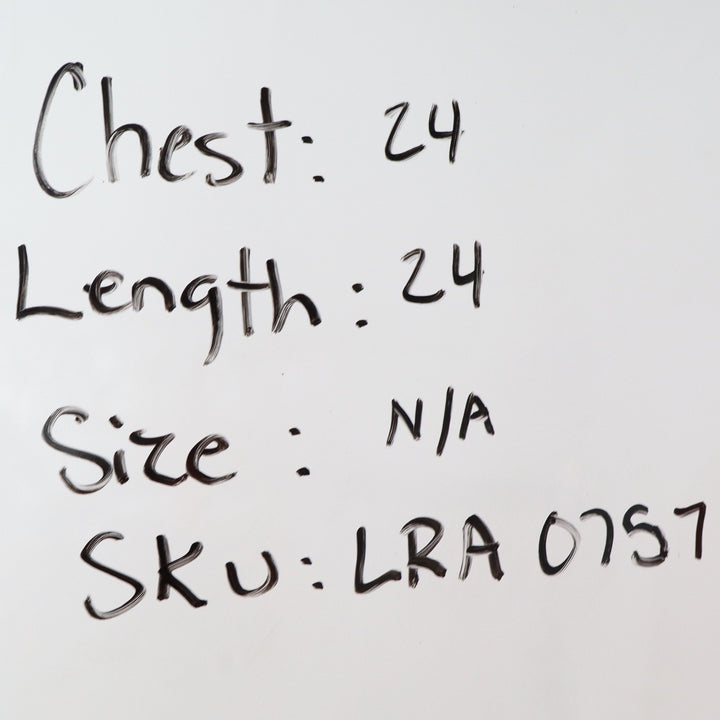 Chest: 24
Length: 24
Size: N/A
SKU: LRA 0757